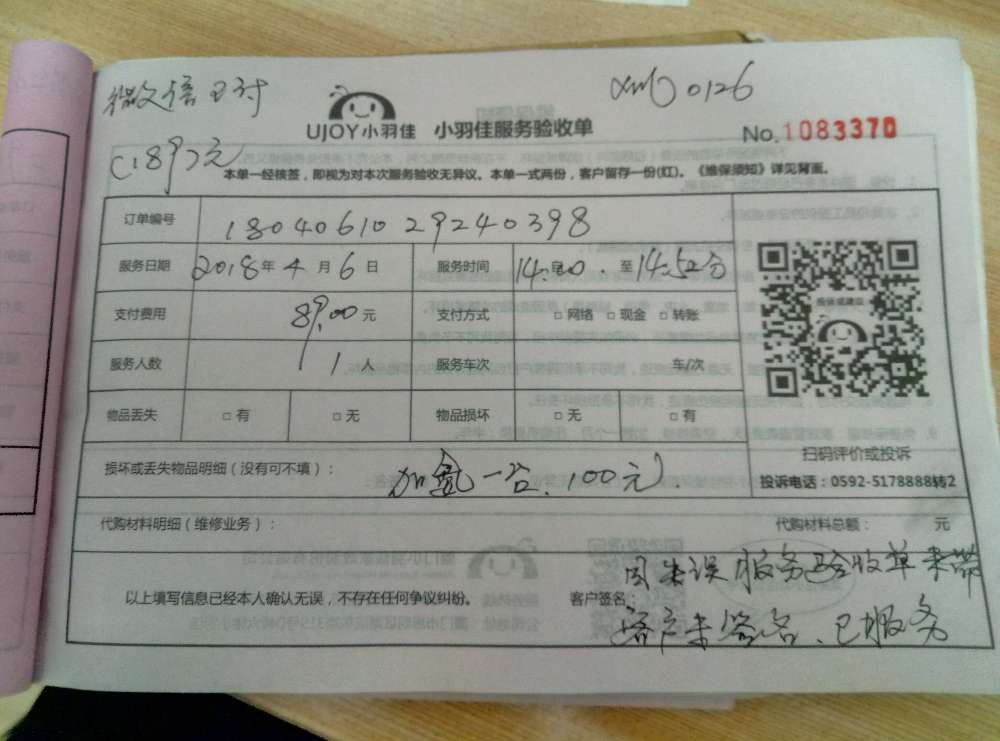 微信已付 xm60126
UJOY小羽佳 小羽佳服务验收单 No.1083370
(189)元
本单一经核签，即视为对本次服务验收无异议。本单一式两份，客户留存一份(红)。《维保须知》详见背面。
订单编号 1804061029240398
服务日期 2018年4月6日 服务时间 14:00 至 14:52分
支付费用 89.00元 支付方式 □网络 □现金 □转账
投诉或建议
服务人数 1人 服务车次 车/次
物品丢失 □有 □无 物品损坏 □无 □有
扫码评价或投诉
损坏或丢失物品明细（没有可不填）： 加氟一台、100元
投诉电话：0592-5178888转2
代购材料明细（维修业务）： 代购材料总额： 元
因 误服务验收单未带
以上填写信息已经本人确认无误，不存在任何争议纠纷。 客户签名：
客户未签名、已服务